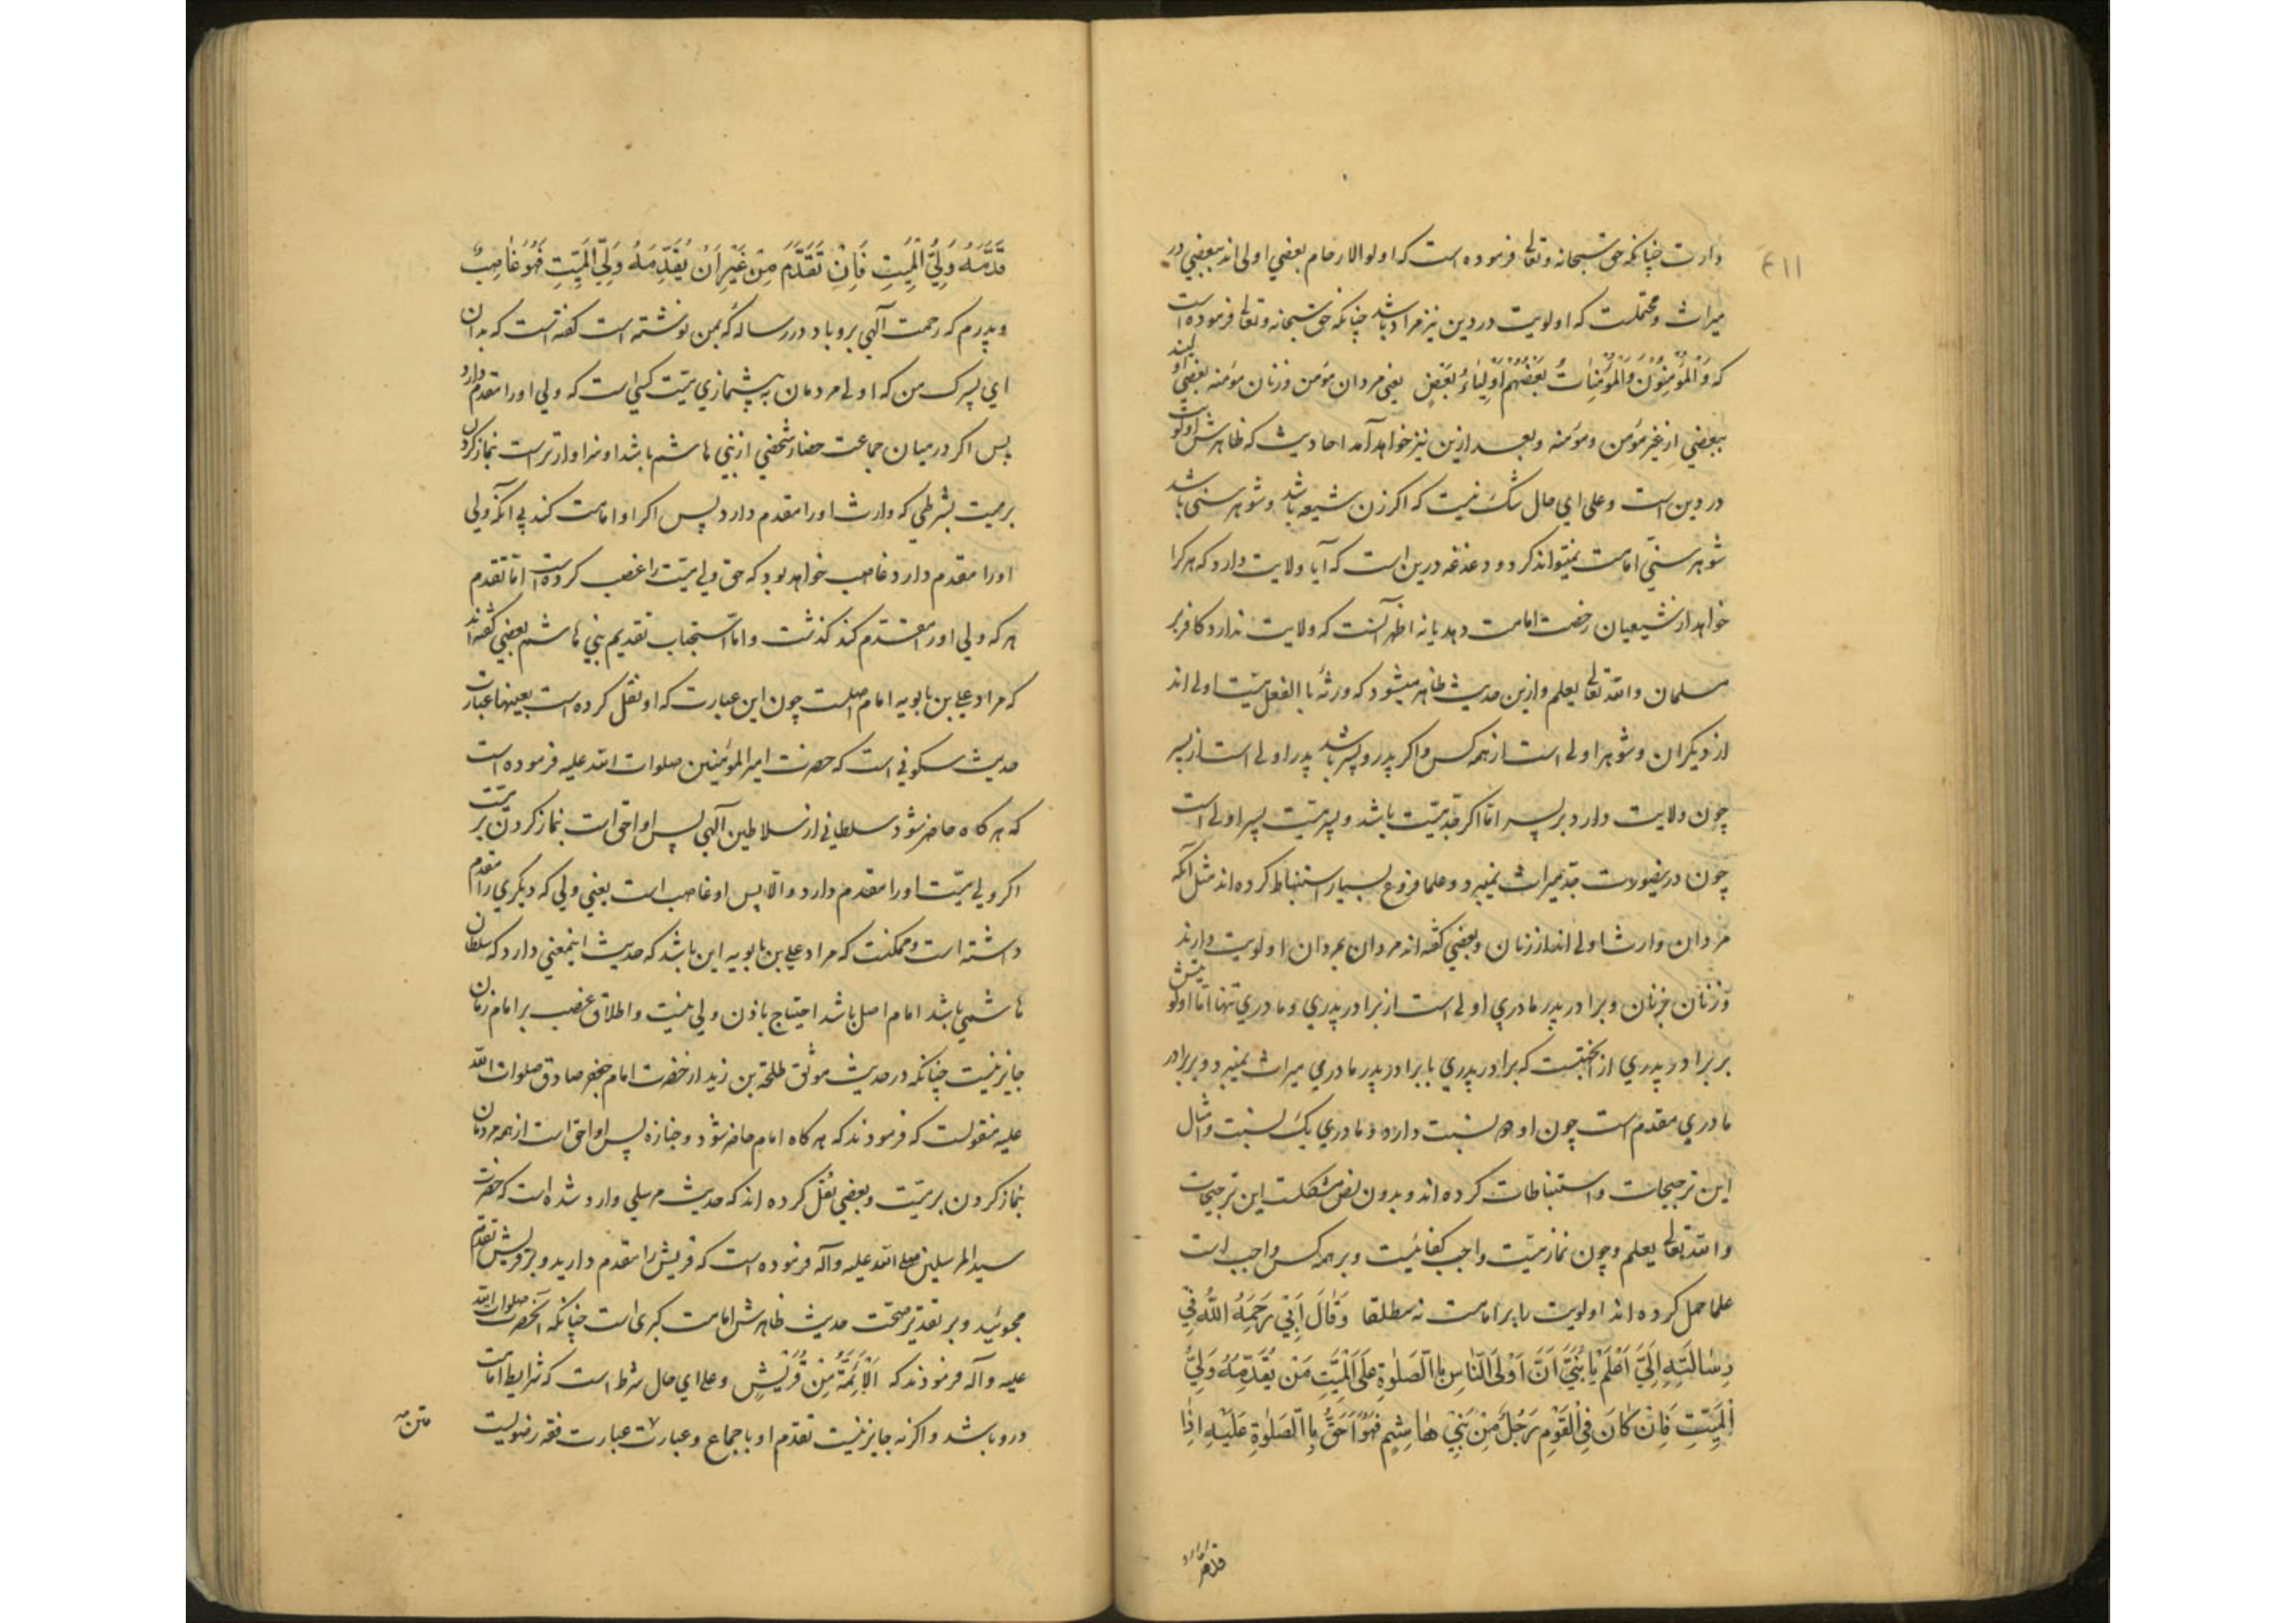 ۴۱۱
دارت چنانکه حق سبحانه و تعالی فرموده است که اولوالارحام بعضی اولی اند ببعضی در
میراث و محتملست که اولویت در دین نیز مراد باشد چنانکه حق سبحانه و تعالی فرموده است
که وَالْمُؤْمِنُونَ وَالْمُؤْمِنَاتُ بَعْضُهُمْ أَوْلِيَاءُ بَعْضٍ یعنی مردان مؤمن و زنان مؤمنه بعضی اولیند
ببعضی از غیر مؤمن و مؤمنه و بعد ازین نیز خواهد آمد احادیث که ظاهرش اولویت
در دین است و علی ای حال شک نیست که اگر زن شیعه باشد و شوهر سنی باشد
شوهر سنّی امامت نمیتواند کرد و دغدغه درین است که آیا ولایت دارد که هر کرا
خواهد از شیعیان رخصت امامت دهد یا نه اظهر آنست که ولایت ندارد کافر بر
مسلمان والله تعالی یعلم و ازین حدیث ظاهر میشود که ورثهٔ باالفعل میّت اولی اند
از دیکران و شوهر اولی است از همه کس و اکر پدر و پسر باشد پدر اولی است از پسر
چون ولایت دارد بر پسر امّا اکر جدّ میّت باشد و پسر میّت پسر اولی است
چون درینصورت جد میراث نمیبرد و علما فروع بسیار استنباط کرده اند مثل آنکه
مردان وارث اولی اند از زنان و بعضی کفته اند مردان بمردان اولویت دارند
و زنان بزنان و برادر پدر مادری اولی است از برادر پدری و مادری تنها امّا اولویتش
بر برادر پدری از انجهتست که برادر پدری با برادر پدر مادری میراث نمیبرد و بر برادر
مادری مقدم است چون او دو نسبت دارد و مادری یک نسبت و امثال
این ترجیحات و استنباطات کرده اند و بدون نص مشکلست این ترجیحات
والله تعالی یعلم و چون نماز میّت واجب کفائیست و بر همه کس واجب است
علما حمل کرده اند اولویت را بر امامت نه مطلقا وَقَالَ أَبِي رَحِمَهُ اللهُ فِي
رِسَالَتِهِ إِلَيَّ اَعْلَمْ يَا بُنَيَّ اَنَّ اَوْلَى النَّاسِ بِاالصَّلٰوةِ عَلَى الْمَيِّتِ مَنْ يُقَدِّمُهُ وَلِيُّ
الْمَيِّتِ فَاِنْ كَانَ فِي الْقَوْمِ رَجُلٌ مِنْ بَنِيْ هَاشِمٍ فَهُوَ اَحَقُّ بِاالصَّلٰوةِ عَلَيْهِ اِذَا
قَدَّمَهُ وَلِيُّ الْمَيِّتِ فَاِنْ تَقَدَّمَ مِنْ غَيْرِ اَنْ يُقَدِّمَهُ وَلِيُّ الْمَيِّتِ فَهُوَ غَاصِبٌ
و پدرم که رحمت آلهی برو باد در رسالهٔ که بمن نوشته است کفته است که بدان
ای پسرک من که اولی مردمان به پیشنمازی میّت کسی است که ولی او را مقدم دارد
پس اکر در میان جماعت حضار شخصی از بنی هاشم باشد او سزاوارتر است نماز کردن
بر میت بشرطی که وارث او را مقدم دارد پس اکر او امامت کند بی آنکه ولی
او را مقدم دارد غاصب خواهد بود که حق ولی میّت را غصب کرده است امّا تقدم
هر که ولی او را مقدم کند کذشت و امّا استحباب تقدیم بنی هاشم بعضی کفته اند
که مراد علی بن بابویه امام اصلست چون این عبارت که او نقل کرده است بعینها عبارت
حدیث سکونی است که حضرت امیرالمؤمنین صلوات الله علیه فرموده است
که هر کاه حاضر شود سلطانی از سلاطین آلهی پس او احق است نماز کردن بر میّت
اکر ولی میّت او را مقدم دارد والّا پس او غاصب است یعنی ولی که دیکری را مقدم
داشته است و ممکنست که مراد علی بن بابویه این باشد که حدیث اینمعنی دارد که سلطان
هاشمی باشد امام اصل باشد احتیاج باذن ولی نیست و اطلاق غصب بر امام زمان
جایز نیست چنانکه در حدیث موثق طلحة بن زید از حضرت امام جعفر صادق صلوات الله
علیه منقولست که فرمودند که هر کاه امام حاضر شود و جنازه پس او احق است از همه مردمان
نماز کردن بر میّت و بعضی نقل کرده اند که حدیث مرسلی وارد شده است که حضرت
سیدالمرسلین صلی الله علیه وآله فرموده است که قریش را مقدم دارید و بر قریش تقدّم
مجوئید و بر تقدیر صحّت حدیث ظاهرش امامت کبری است چنانکه آنحضرت صلوات الله
علیه وآله فرمودند که اَلْاَئِمَّةُ مِنْ قُرَيْشٍ و علی ای حال شرط است که شرایط امامت
درو باشد و اکر نه جایز نیست تقدم او باجماع و عبارت عبارت فقه رضویست